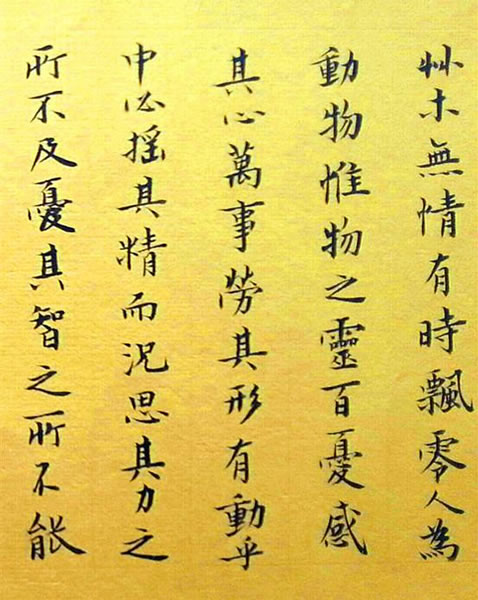 艸木無情有時飄零人為
動物惟物之靈百憂感
其心萬事勞其形有動乎
中必揺其精而況思其力之
所不及憂其智之所不能